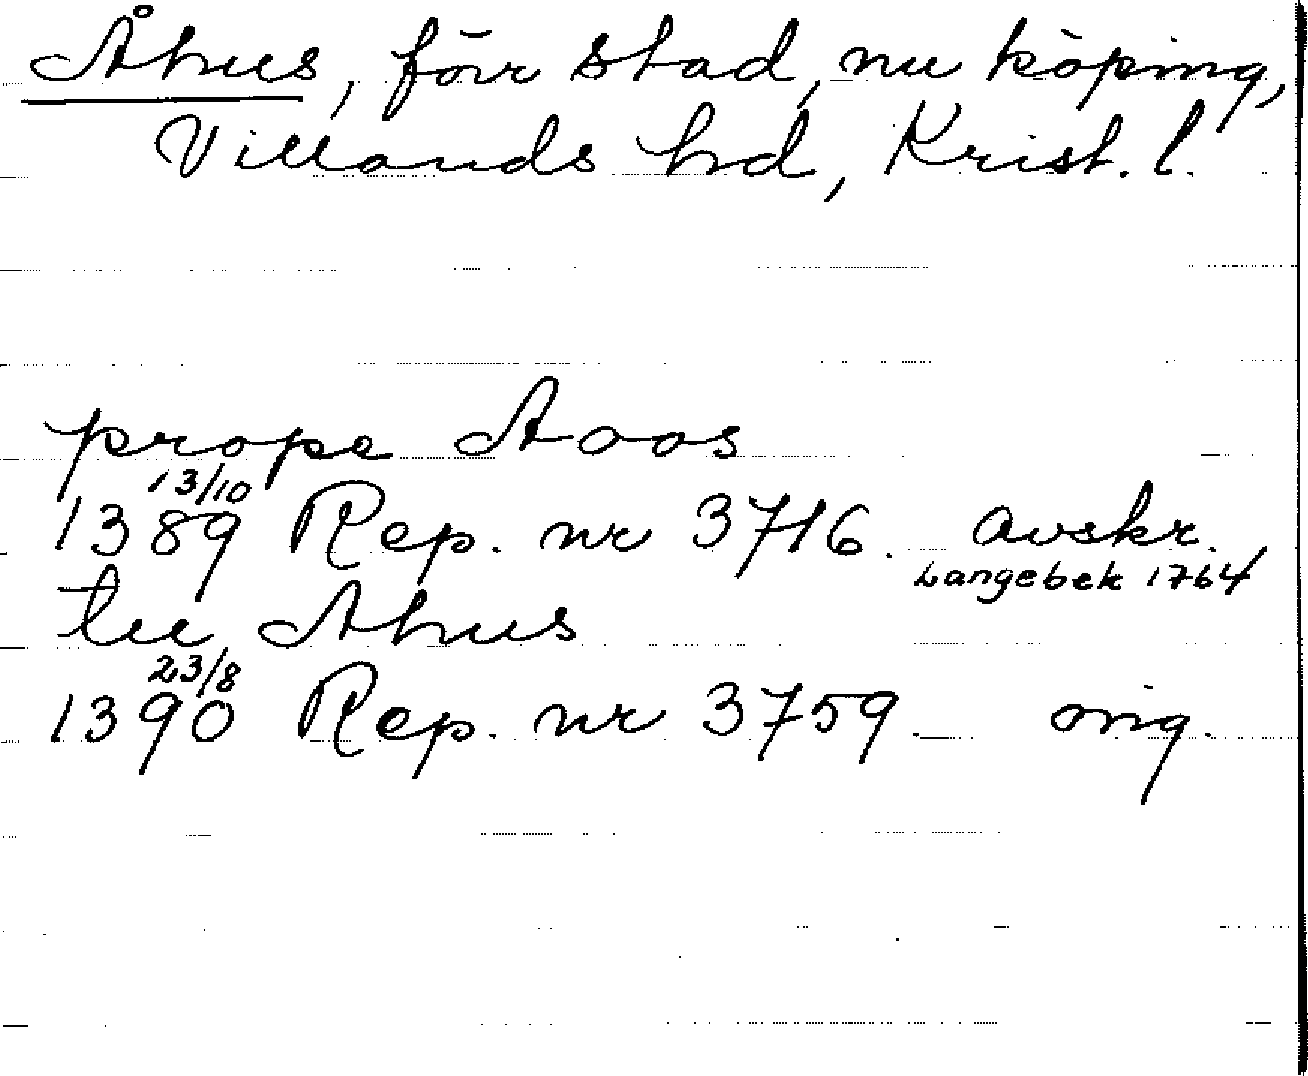 Åhus, förr stad, nu köping,
Villands hd, Krist. l.
prope Aoos
13/10
1389 Rep. nr 3716. avskr.
Langebek 1764
till Ahus
23/8
1390 Rep. nr 3759. orig.